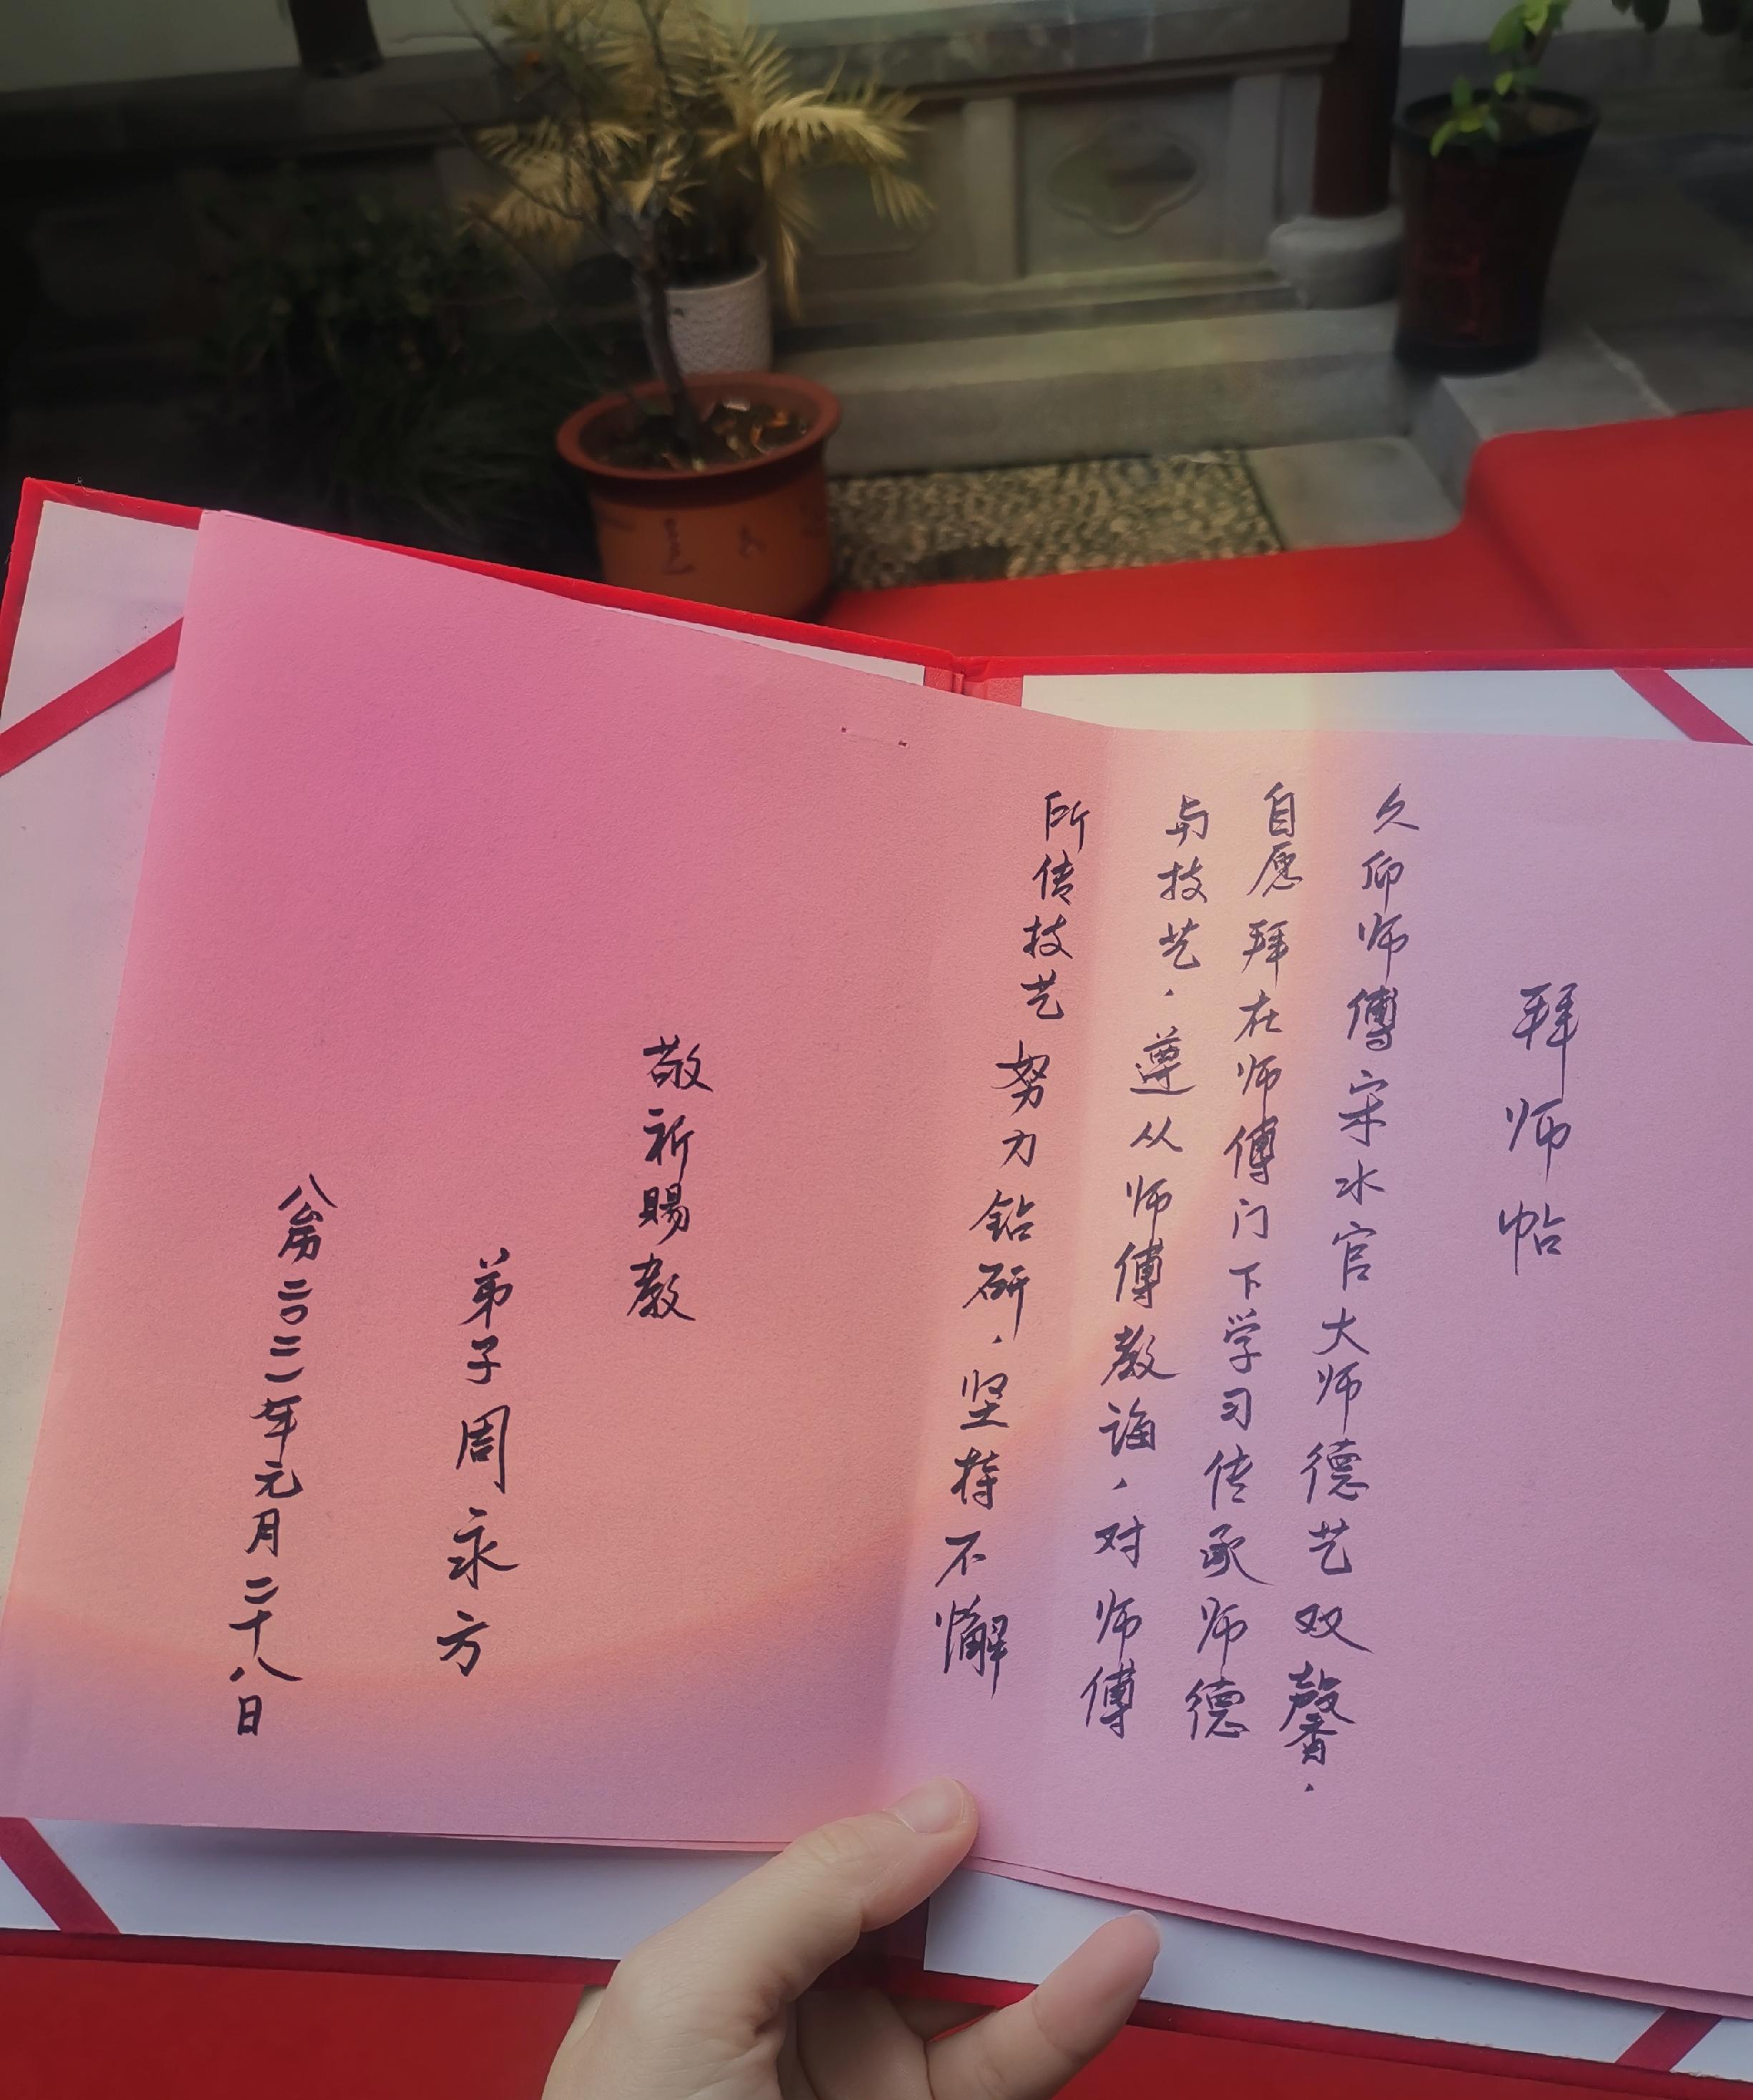 拜师帖
久仰师傅宋水官大师德艺双馨，
自愿拜在师傅门下学习传承师德
与技艺，遵从师傅教诲，对师傅
所传技艺努力钻研，坚持不懈
敬祈赐教
弟子周永方
公历二〇二一年元月二十八日